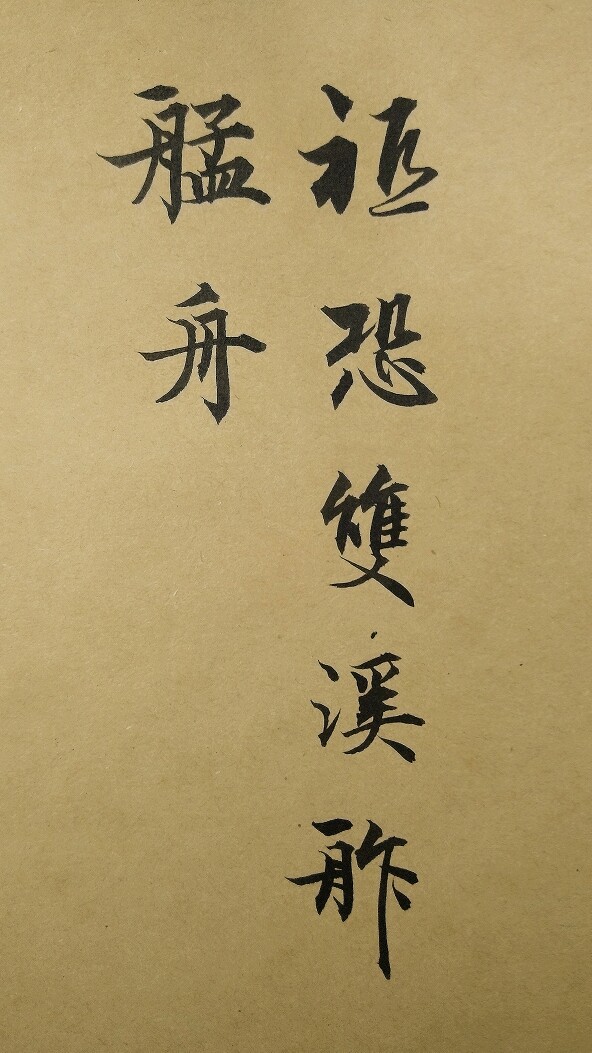 祗恐雙溪舴
艋舟